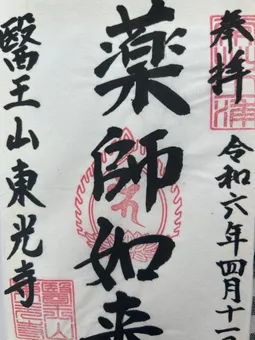 奉拝
令和六年四月十一日
薬師如来
醫王山東光寺